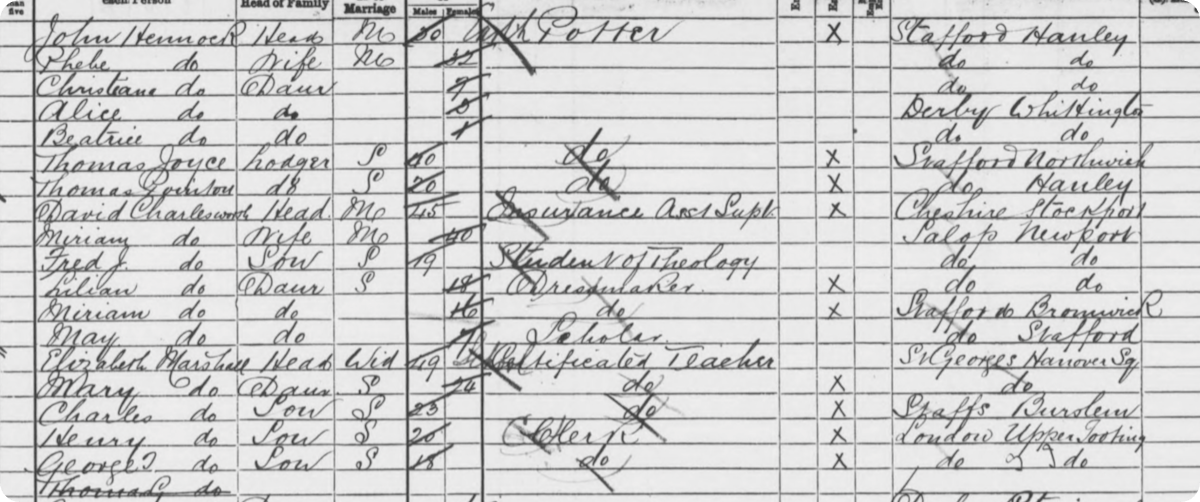 each Person Head of Family Marriage Males Females
John Hennock Head M 30 Potter X Stafford Hanley
Phebe do Wife M 32 do do
Christiana do Daur do do
Alice do do Derby Whittington
Beatrice do do 1 do do
Thomas Joyce Lodger S 40 do X Stafford Northwich
Thomas do S 20 do X do Hanley
David Charlesworth Head M 45 Insurance Asst Supt X Cheshire Stockport
Miriam do Wife M 40 Salop Newport
Fred J. do Son S 19 Student of Theology do do
Lilian do Daur S 18 Dressmaker X do do
Miriam do do 16 do X Stafford Bromwich
May do do Scholar do Stafford
Elizabeth Marshall Head Wid 49 Certificated Teacher St Georges Hanover Sq
Mary do Daur S do X do
Charles do Son S 23 do X Staffs Burslem
Henry do Son S 20 Clerk X London Upper Tooting
George T. do Son S 18 do X do do
Thomas do